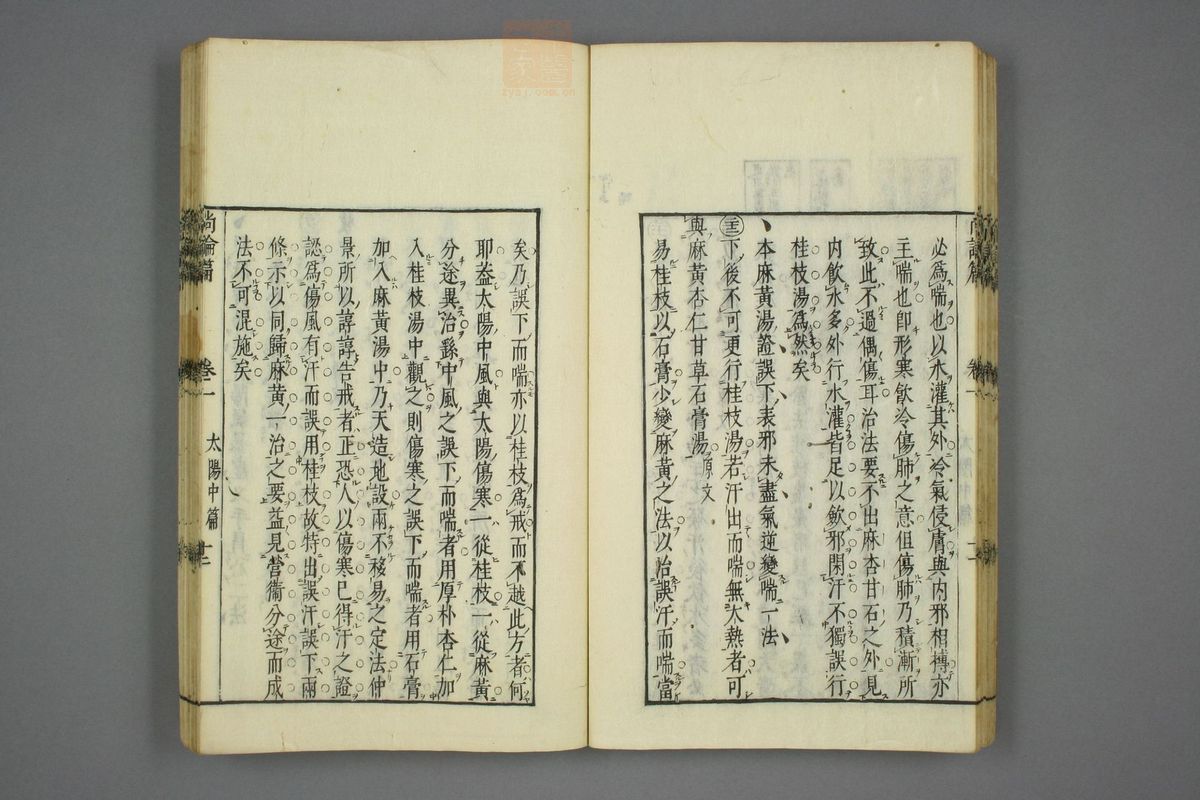 必爲喘也以水灌其外冷氣侵膚與內邪相搏亦
主喘也卽形寒飲冷傷肺之意但傷肺乃積漸所
致此不過偶傷耳治法要不出麻杏甘石之外見
內飲水多外行水灌皆足以歛邪閉汗不獨誤行
桂枝湯爲然矣
本麻黃湯證誤下表邪未盡氣逆變喘一法
下後不可更行桂枝湯若汗出而喘無大熱者可
與麻黃杏仁甘草石膏湯原文
易桂枝以石膏少變麻黃之法以治誤汗而喘當
矣乃誤下而喘亦以桂枝爲戒而不越此方者何
耶葢太陽中風與太陽傷寒一從桂枝一從麻黃
分途異治繇中風之誤下而喘者用厚朴杏仁加
入桂枝湯中觀之則傷寒之誤下而喘者用石膏
加入麻黃湯中乃天造地設兩不移易之定法仲
景所以諄諄告戒者正恐人以傷寒已得汗之證
認爲傷風有汗而誤用桂枝故特出誤汗誤下兩
條示以同歸麻黃一治之要益見營衞分途而成
法不可混施矣
尚論篇 卷一 太陽中篇 十二
zysj.com.cn